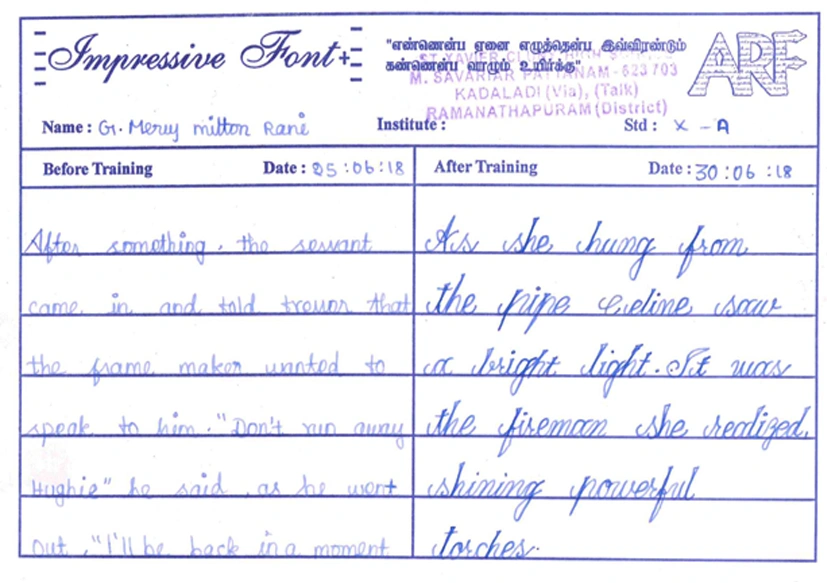 Impressive Font
"எண்ணென்ப ஏனை எழுத்தென்ப இவ்விரண்டும்
கண்ணென்ப வாழும் உயிர்க்கு"
ARF
M. SAVARIAR PATTANAM - 623 703
KADALADI (Via), (Talk)
RAMANATHAPURAM (District)
Name : G. Mercy milton Rani
Institute :
Std : X - A
Before Training Date : 25 : 06 : 18
After sомething. the servant
came in and told trevor that
the frame maker wanted to
speak to him. "Don't run away
Hughie" he said, as he went
out, "I'll be back in a moment
After Training Date : 30 : 06 : 18
As she hung from
the pipe Celine saw
a bright light. It was
the fireman she realized,
shining powerful
torches.